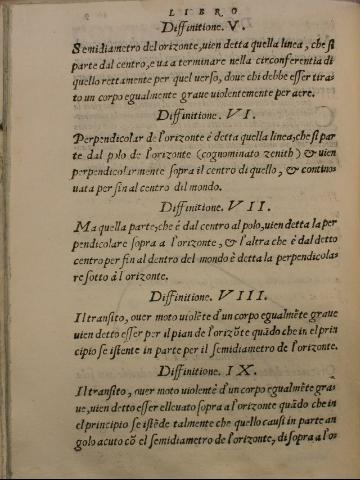 LIBRO
Diffinitione. V.
Semidiametro del orizonte, uien detta quella linea, che si
parte dal centro, e ua a terminare nella circonferentia di
quello rettamente per quel uerso, doue chi debbe esser tira
to un corpo egualmente graue uiolentemente per aere.
Diffinitione. VI.
Perpendicolar de l'orizonte è detta quella linea, che si par
te dal polo de l'orizonte (cognominato zenith) & uien
perpendicolarmente sopra il centro di quello, & contino-
uata per fin al centro dil mondo.
Diffinitione. VII.
Ma quella parte, che è dal centro al polo, uien detta la per
pendicolare sopra a l'orizonte, & l'altra che è dal detto
centro per fin al dentro del mondo è detta la perpendicola-
re sotto à l'orizonte.
Diffinitione. VIII.
Il transito, ouer moto uiolẽte d'un corpo egualmẽte graue
uien detto esser per il pian de l'orizõte quãdo che in el prin
cipio se istente in parte per il semidiametro de l'orizonte.
Diffinitione. IX.
Il transito, ouer moto uiolente d'un corpo egualmẽte gra-
ue, uien detto esser elleuato sopra a l'orizonte quãdo che in
el principio se istẽde talmente che quello causi in parte an
golo acuto cõ el semidiametro de l'orizonte, di sopra a l'o-